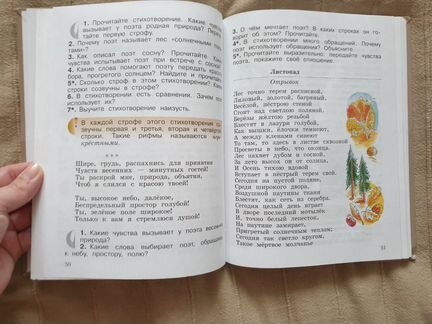 1. Прочитайте стихотворение. Какие чувства
вызывает у поэта родная природа? Перечи-
тайте первую строфу.
2. Почему поэт называет лес «солнечными пол-
3. Как описал поэт сосну? Прочитайте. Какие
чувства испытывает поэт при встрече с сосной?
4. Какие слова помогают поэту передать красоту
прогретого солнцем? Найдите и прочитайте
5*. Сколько строф в этом стихотворении? Какие
строки созвучны в строфе?
6. В стихотворении есть сравнения. Зачем поэт
использует их?
7*. Выучите стихотворение наизусть.
В каждой строфе этого стихотворения со-
звучны первая и третья, вторая и четвёртая
строки. Такие рифмы называются пере-
крёстными.
* * *
Шире, грудь, распахнись для принятия
Чувств весенних — минутных гостей!
Ты раскрой мне, природа, объятия,
Чтоб я слился с красою твоей!
Ты, высокое небо, далёкое,
Беспредельный простор голубой!
Ты, зелёное поле широкое!
Только к вам я стремлюся душой!
1. Какие чувства вызывает у поэта весенняя
природа?
2. Какие слова выбирает поэт, обращаясь
к небу, простору, полю?
50
3. О чём мечтает поэт? В каких строках он го-
ворит об этом? Прочитайте.
4*. В стихотворении много обращений. Почему
поэт использует обращения? Объясните.
5*. Прочитайте выразительно, передайте чувства
поэта, покажите своё отношение.
Листопад
Отрывок
Лес точно терем расписной,
Лиловый, золотой, багряный,
Весёлой, пёстрою стеной
Стоит над светлою поляной.
Берёзы жёлтою резьбой
Блестят в лазури голубой,
Как вышки, ёлочки темнеют,
А между клёнами синеют
То там, то здесь в листве сквозной
Просветы в небо, что оконца.
Лес пахнет дубом и сосной,
За лето высох он от солнца,
И Осень тихою вдовой
Вступает в пёстрый терем свой.
Сегодня на пустой поляне,
Среди широкого двора,
Воздушной паутины ткани
Блестят, как сеть из серебра.
Сегодня целый день играет
В дворе последний мотылёк
И, точно белый лепесток,
На паутине замирает,
Пригретый солнечным теплом;
Сегодня так светло кругом,
Такое мёртвое молчанье
51